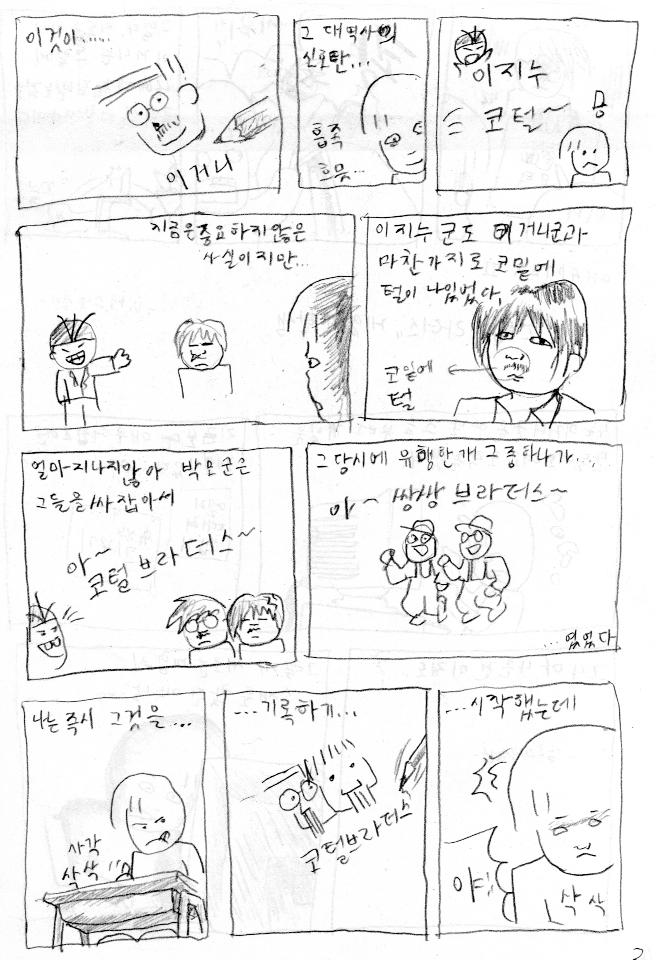 이것이......
이거니
그 대역사의
신호탄...
흡족
흐뭇...
이지누
코털~
지금은중요하지않은
사실이지만...
이지누 군도 이거니군과
마찬가지로 코밑에
털이 나있었다.
코밑에
털
얼마지나지않아 박모군은
그들을싸잡아서
아~
코털브라더스~
그당시에 유행한개그중하나가...
아~ 쌍쌍브라더스~
...였었다
나는 즉시 그것을...
사각
삭삭
...기록하기...
코털브라더스
...시작했는데
야!
삭 삭
2